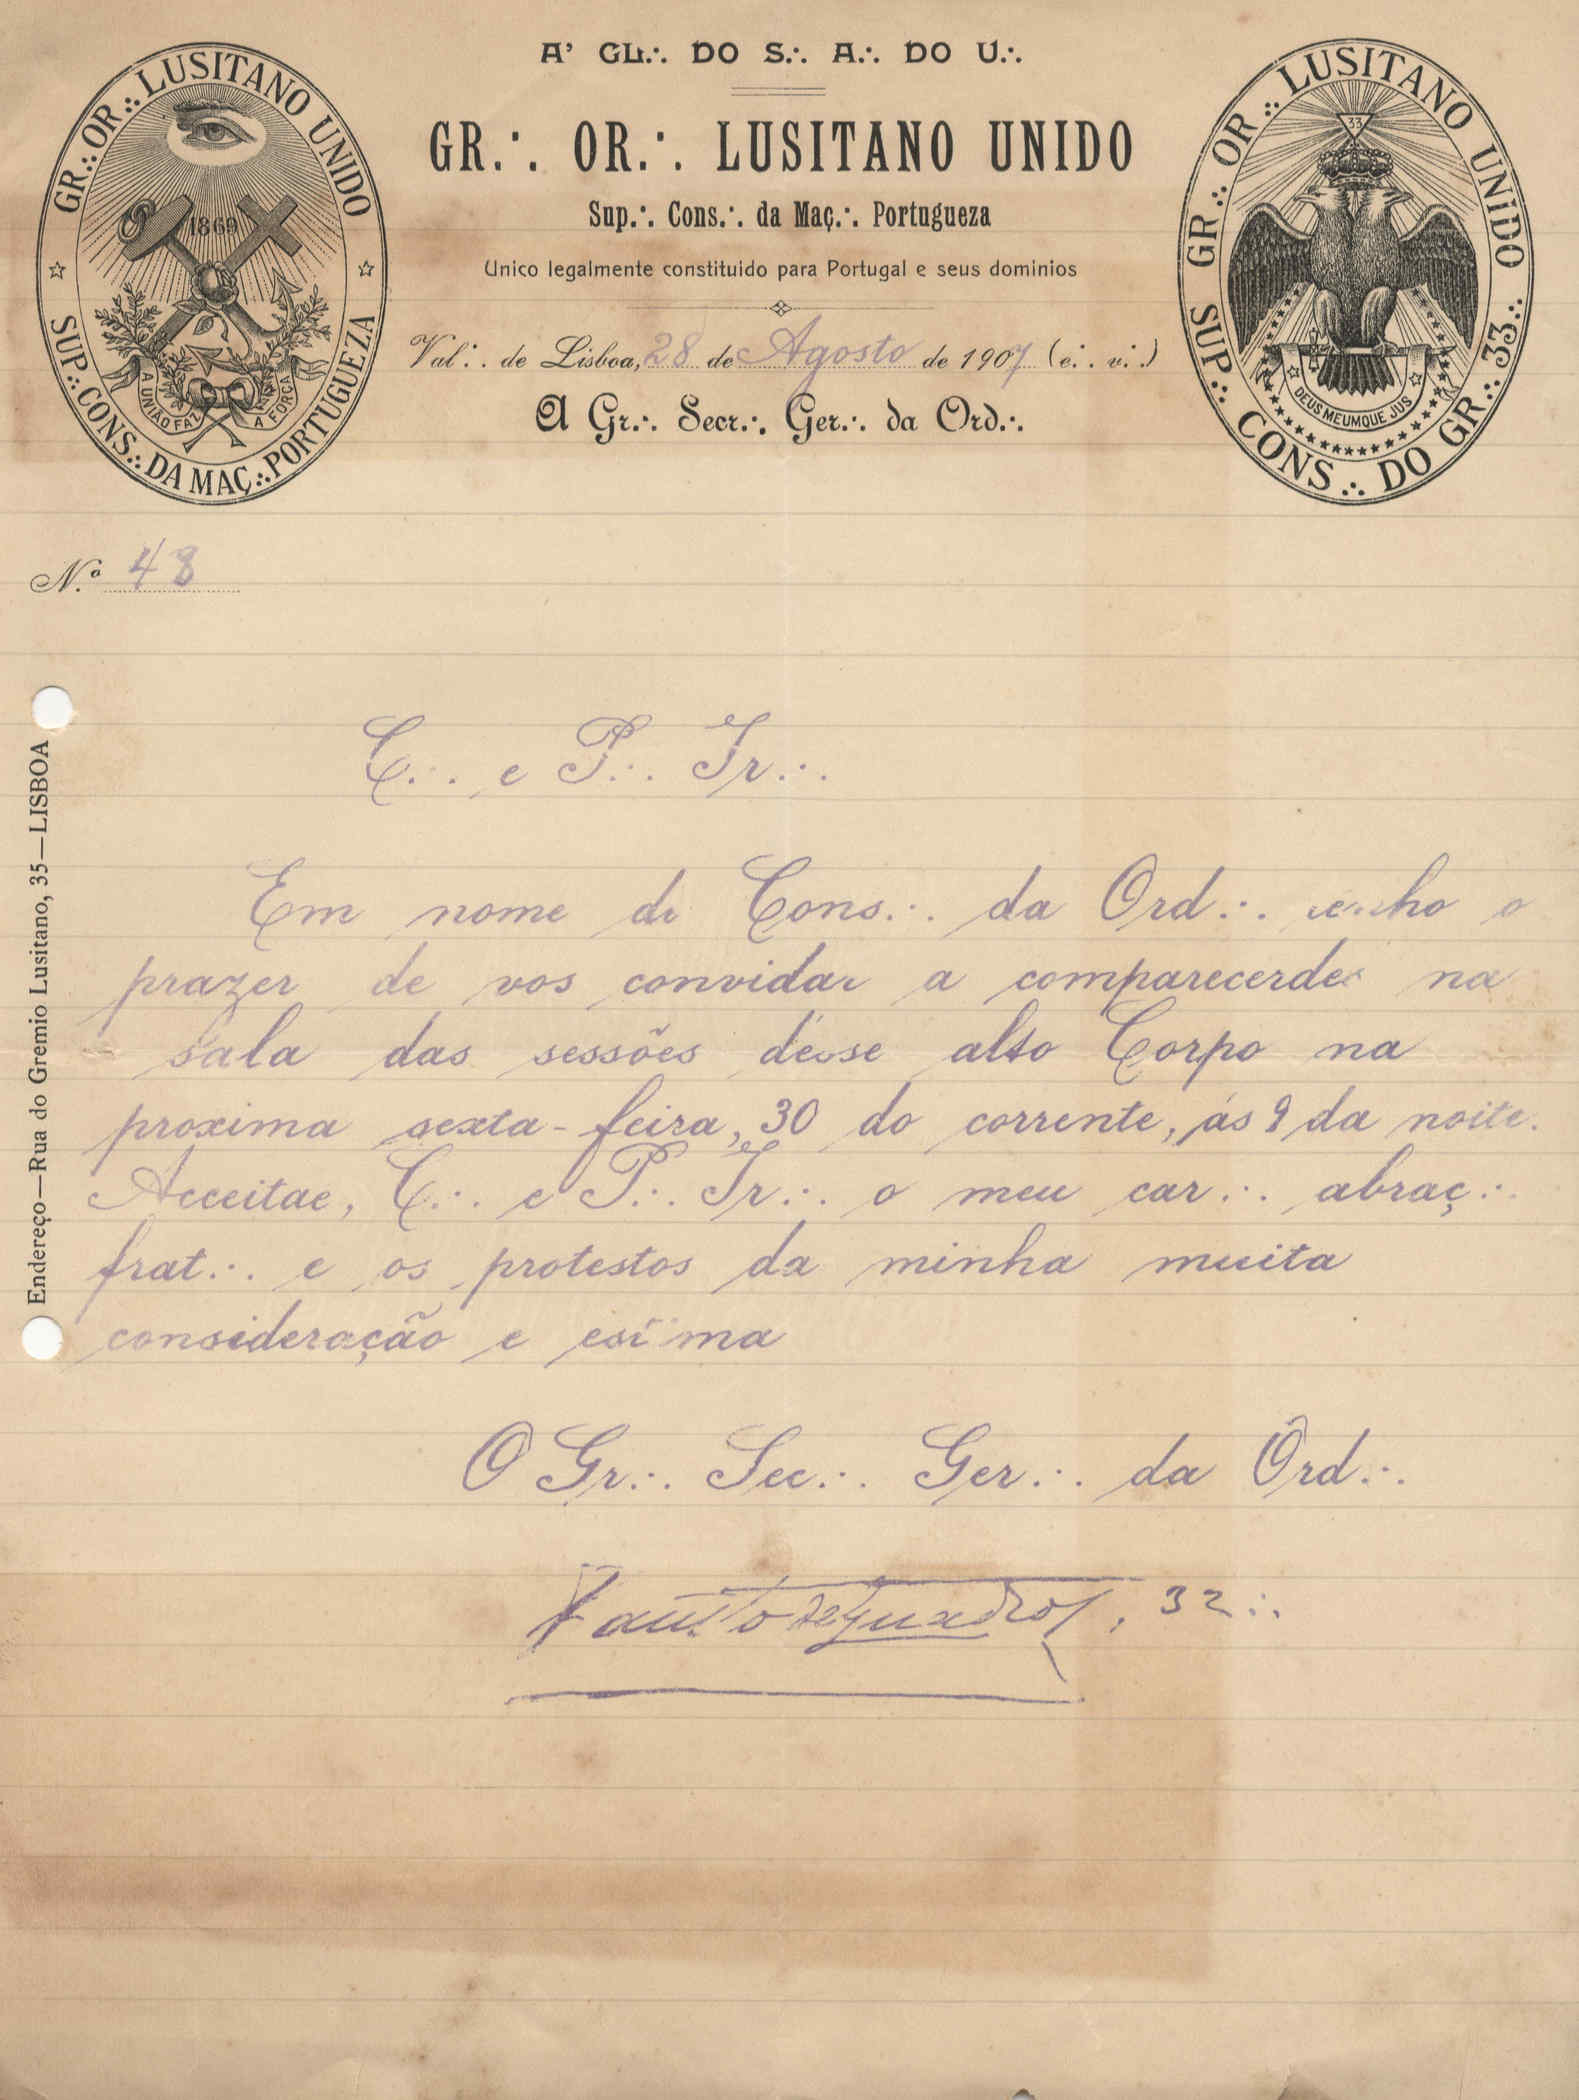 A' GL∴ DO S∴ A∴ DO U∴
GR∴ OR∴ LUSITANO UNIDO
Sup∴ Cons∴ da Maç∴ Portugueza
Unico legalmente constituido para Portugal e seus dominios
Val∴ de Lisboa, 28 de Agosto de 1907 (e∴ v∴)
A Gr∴ Secr∴ Ger∴ da Ord∴
GR∴ OR∴ LUSITANO UNIDO
SUP∴ CONS∴ DA MAÇ∴ PORTUGUEZA
1869
A UNIÃO FAZ A FORÇA
SUP∴ GR∴ OR∴ LUSITANO UNIDO
CONS∴ DO GR∴ 33∴
33
DEUS MEUMQUE JUS
N.º 48
Endereço—Rua do Gremio Lusitano, 35—LISBOA
C∴ e P∴ Ir∴
Em nome do Cons∴ da Ord∴ tenho o
prazer de vos convidar a comparecerdes na
sala das sessões désse alto Corpo na
proxima sexta-feira, 30 do corrente, ás 9 da noite.
Acceitae, C∴ e P∴ Ir∴ o meu car∴ abraç∴
frat∴ e os protestos da minha muita
consideração e estima
O Gr∴ Sec∴ Ger∴ da Ord∴
Fausto de Quadros, 32∴